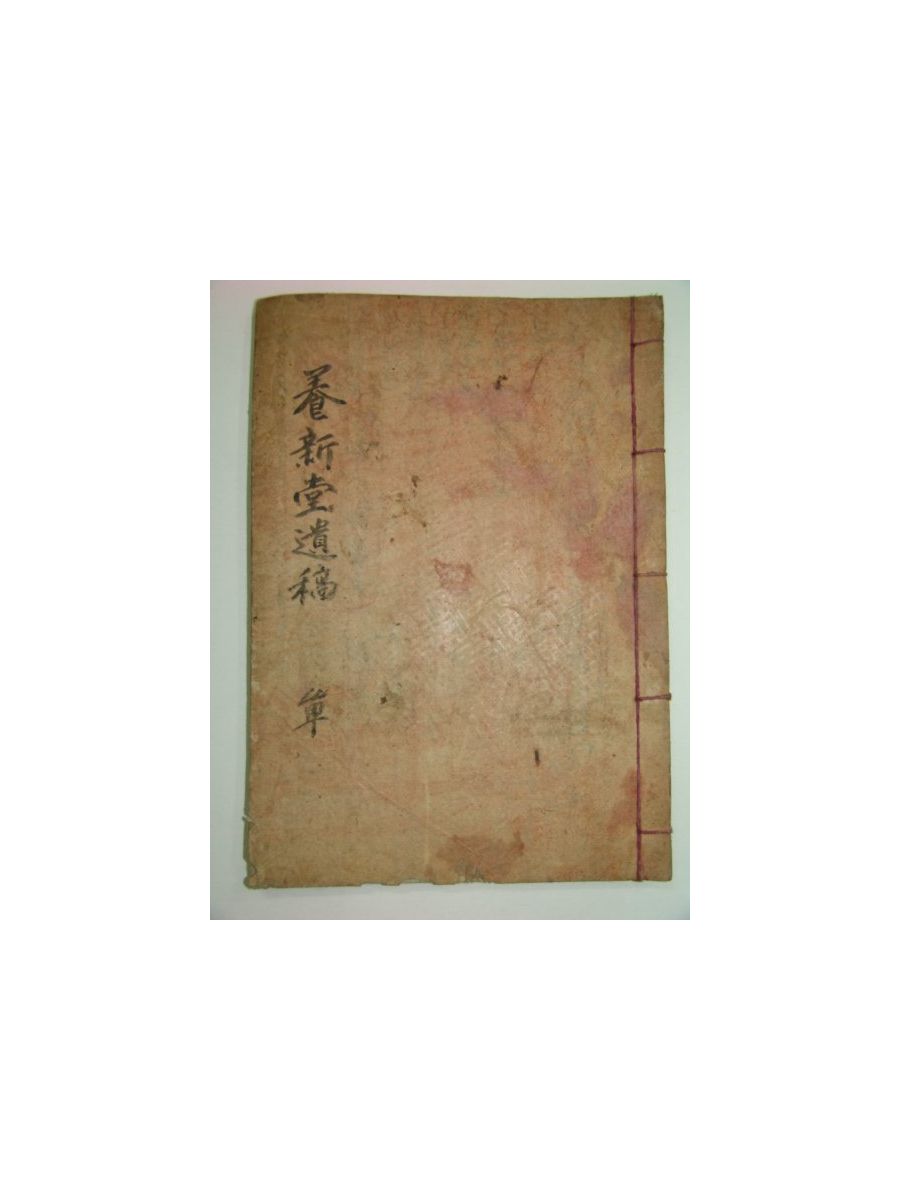 養新堂遺稿
單